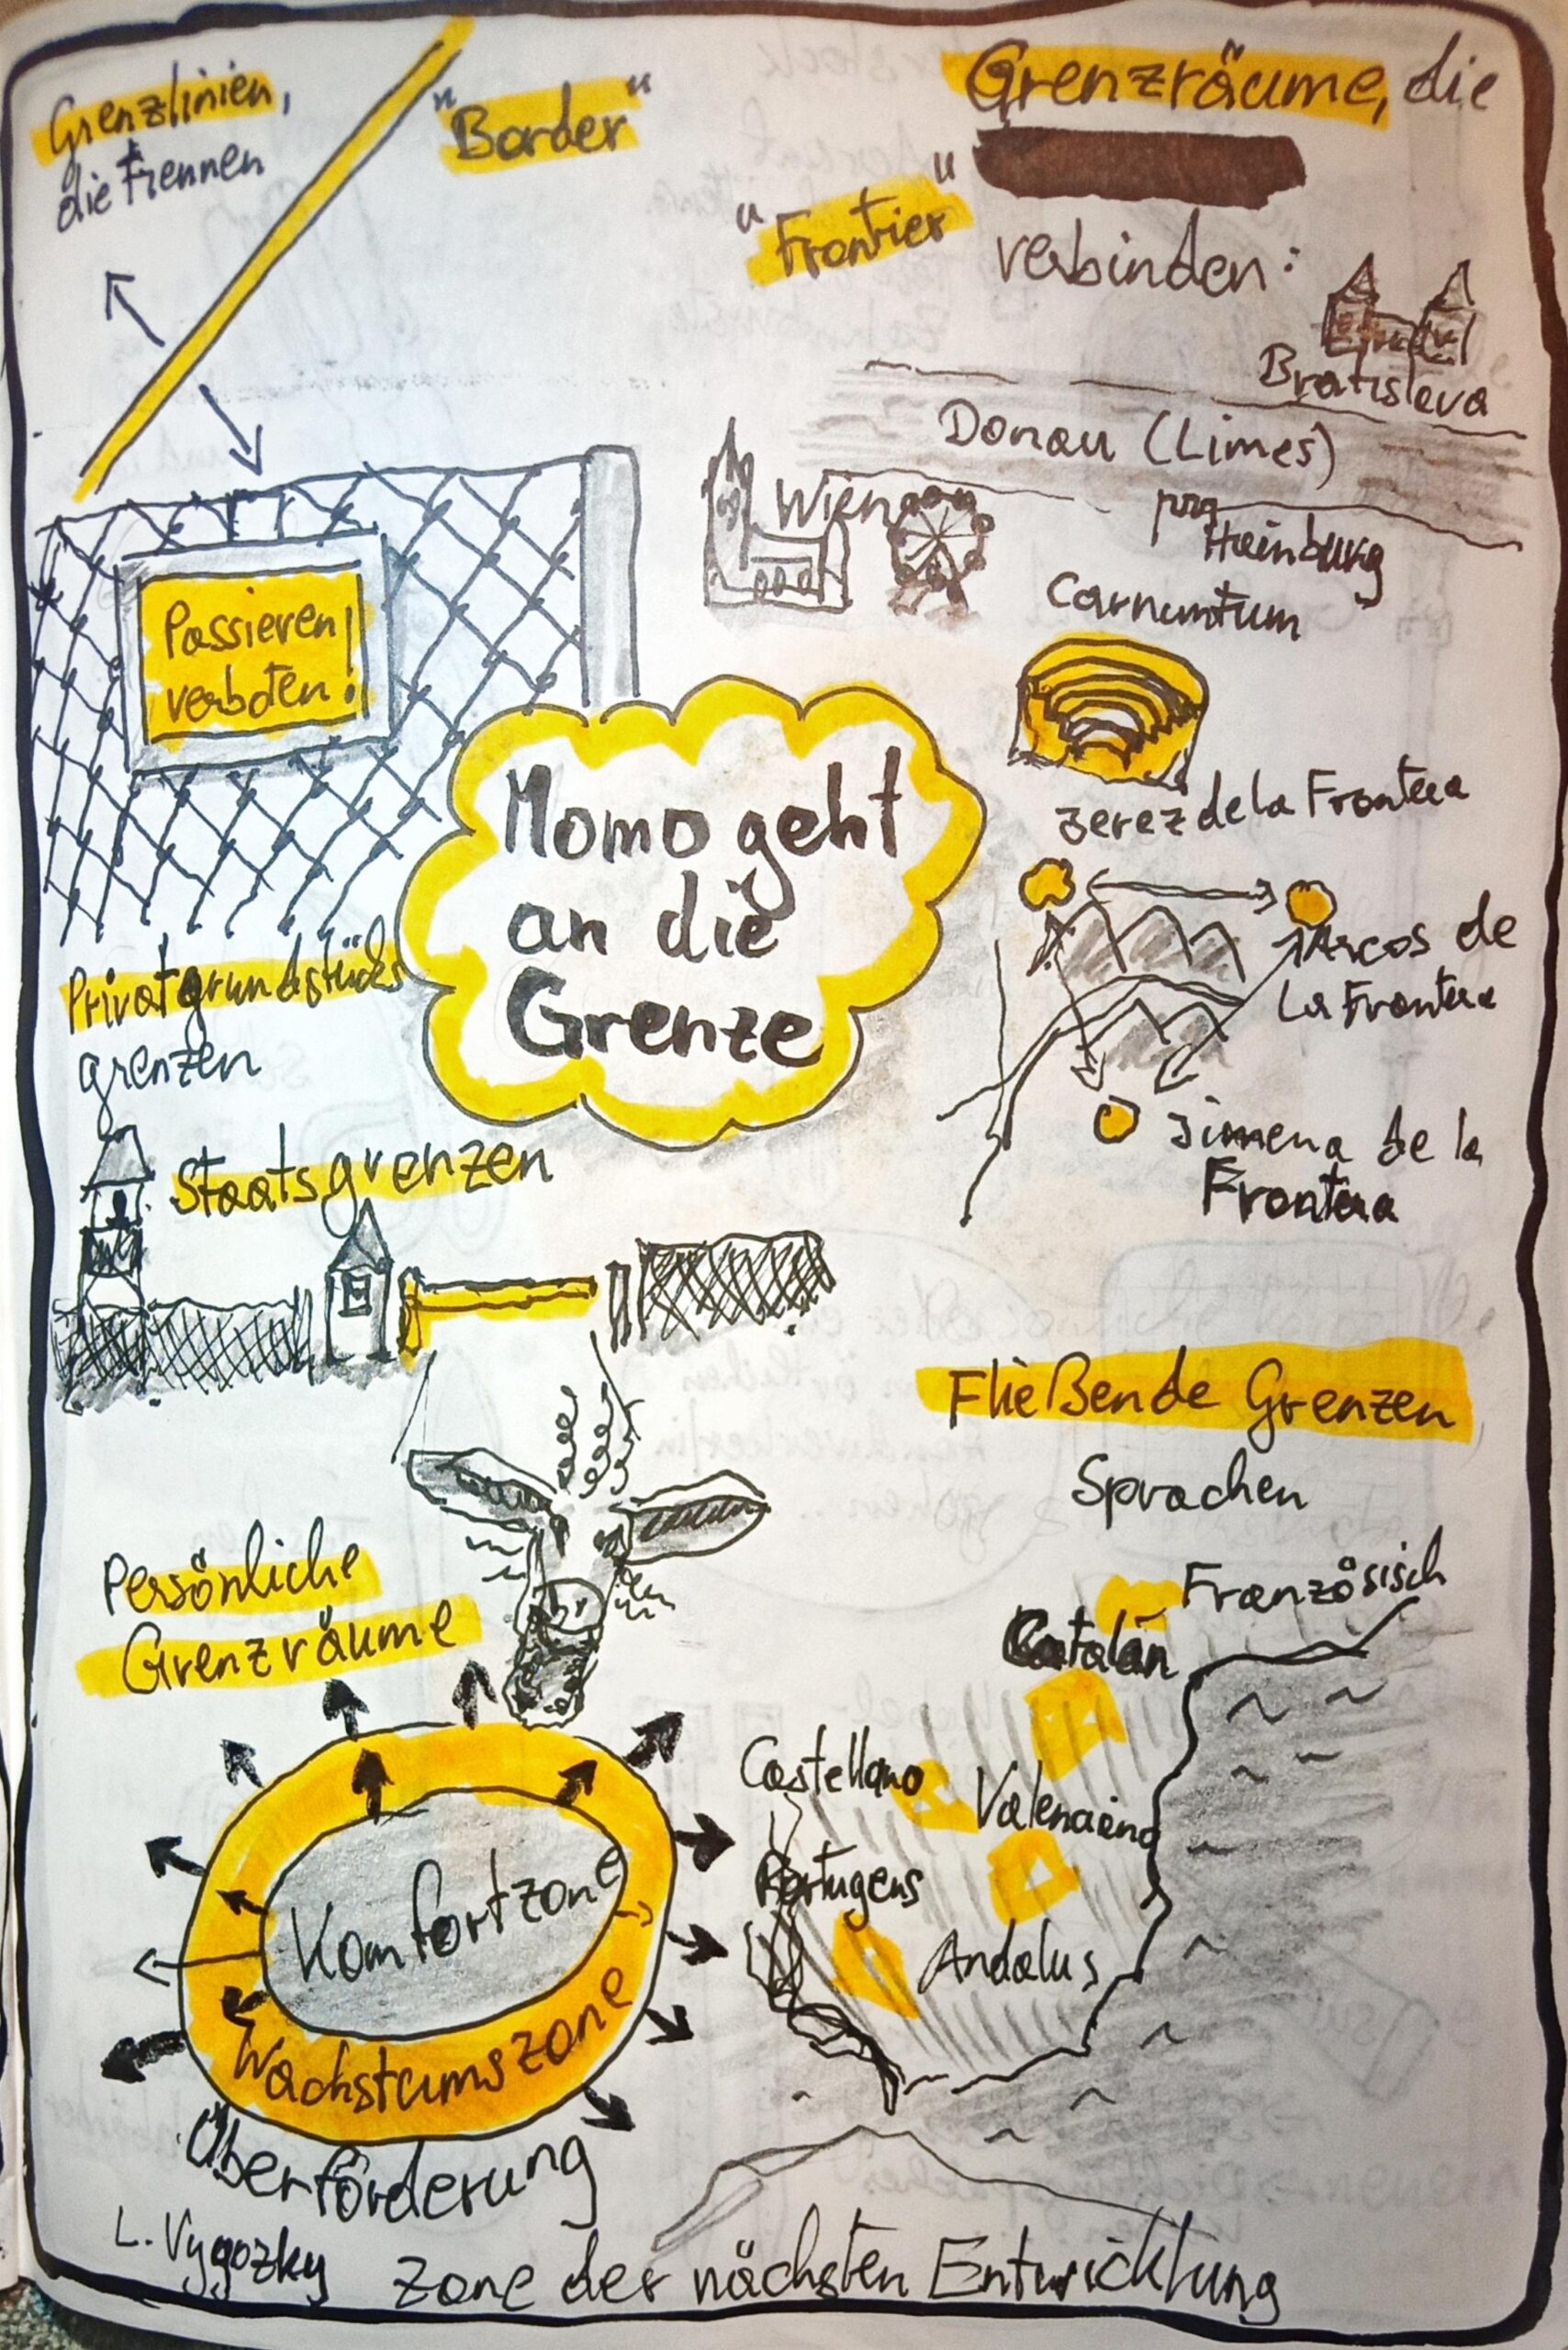 Grenzlinien,
die trennen
"Border"
Grenzräume, die
"Frontier"
verbinden:
Bratislava
Donau (Limes)
Wien
Hainburg
Carnuntum
Passieren
verboten!
Momo geht
an die
Grenze
Jerez de la Frontera
Arcos de
La Frontera
Jimena de la
Frontera
Privatgrundstücks
grenzen
Staatsgrenzen
Fließende Grenzen
Sprachen
Französisch
Catalán
Castellano
Portugens
Andalus
Persönliche
Grenzräume
Komfortzone
Wachstumszone
Überförderung
L. Vygozky
Zone der nächsten Entwicklung